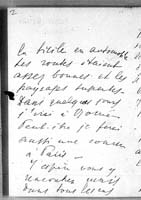 2
la Sicile en automobile
les routes étaient
assez bonnes et les
paysages superbes
dans quelques jours
j'irai à
peut-être je ferai
aussi une course
à Paris –
J'espère vous y
rencontrer
dans tous les cas